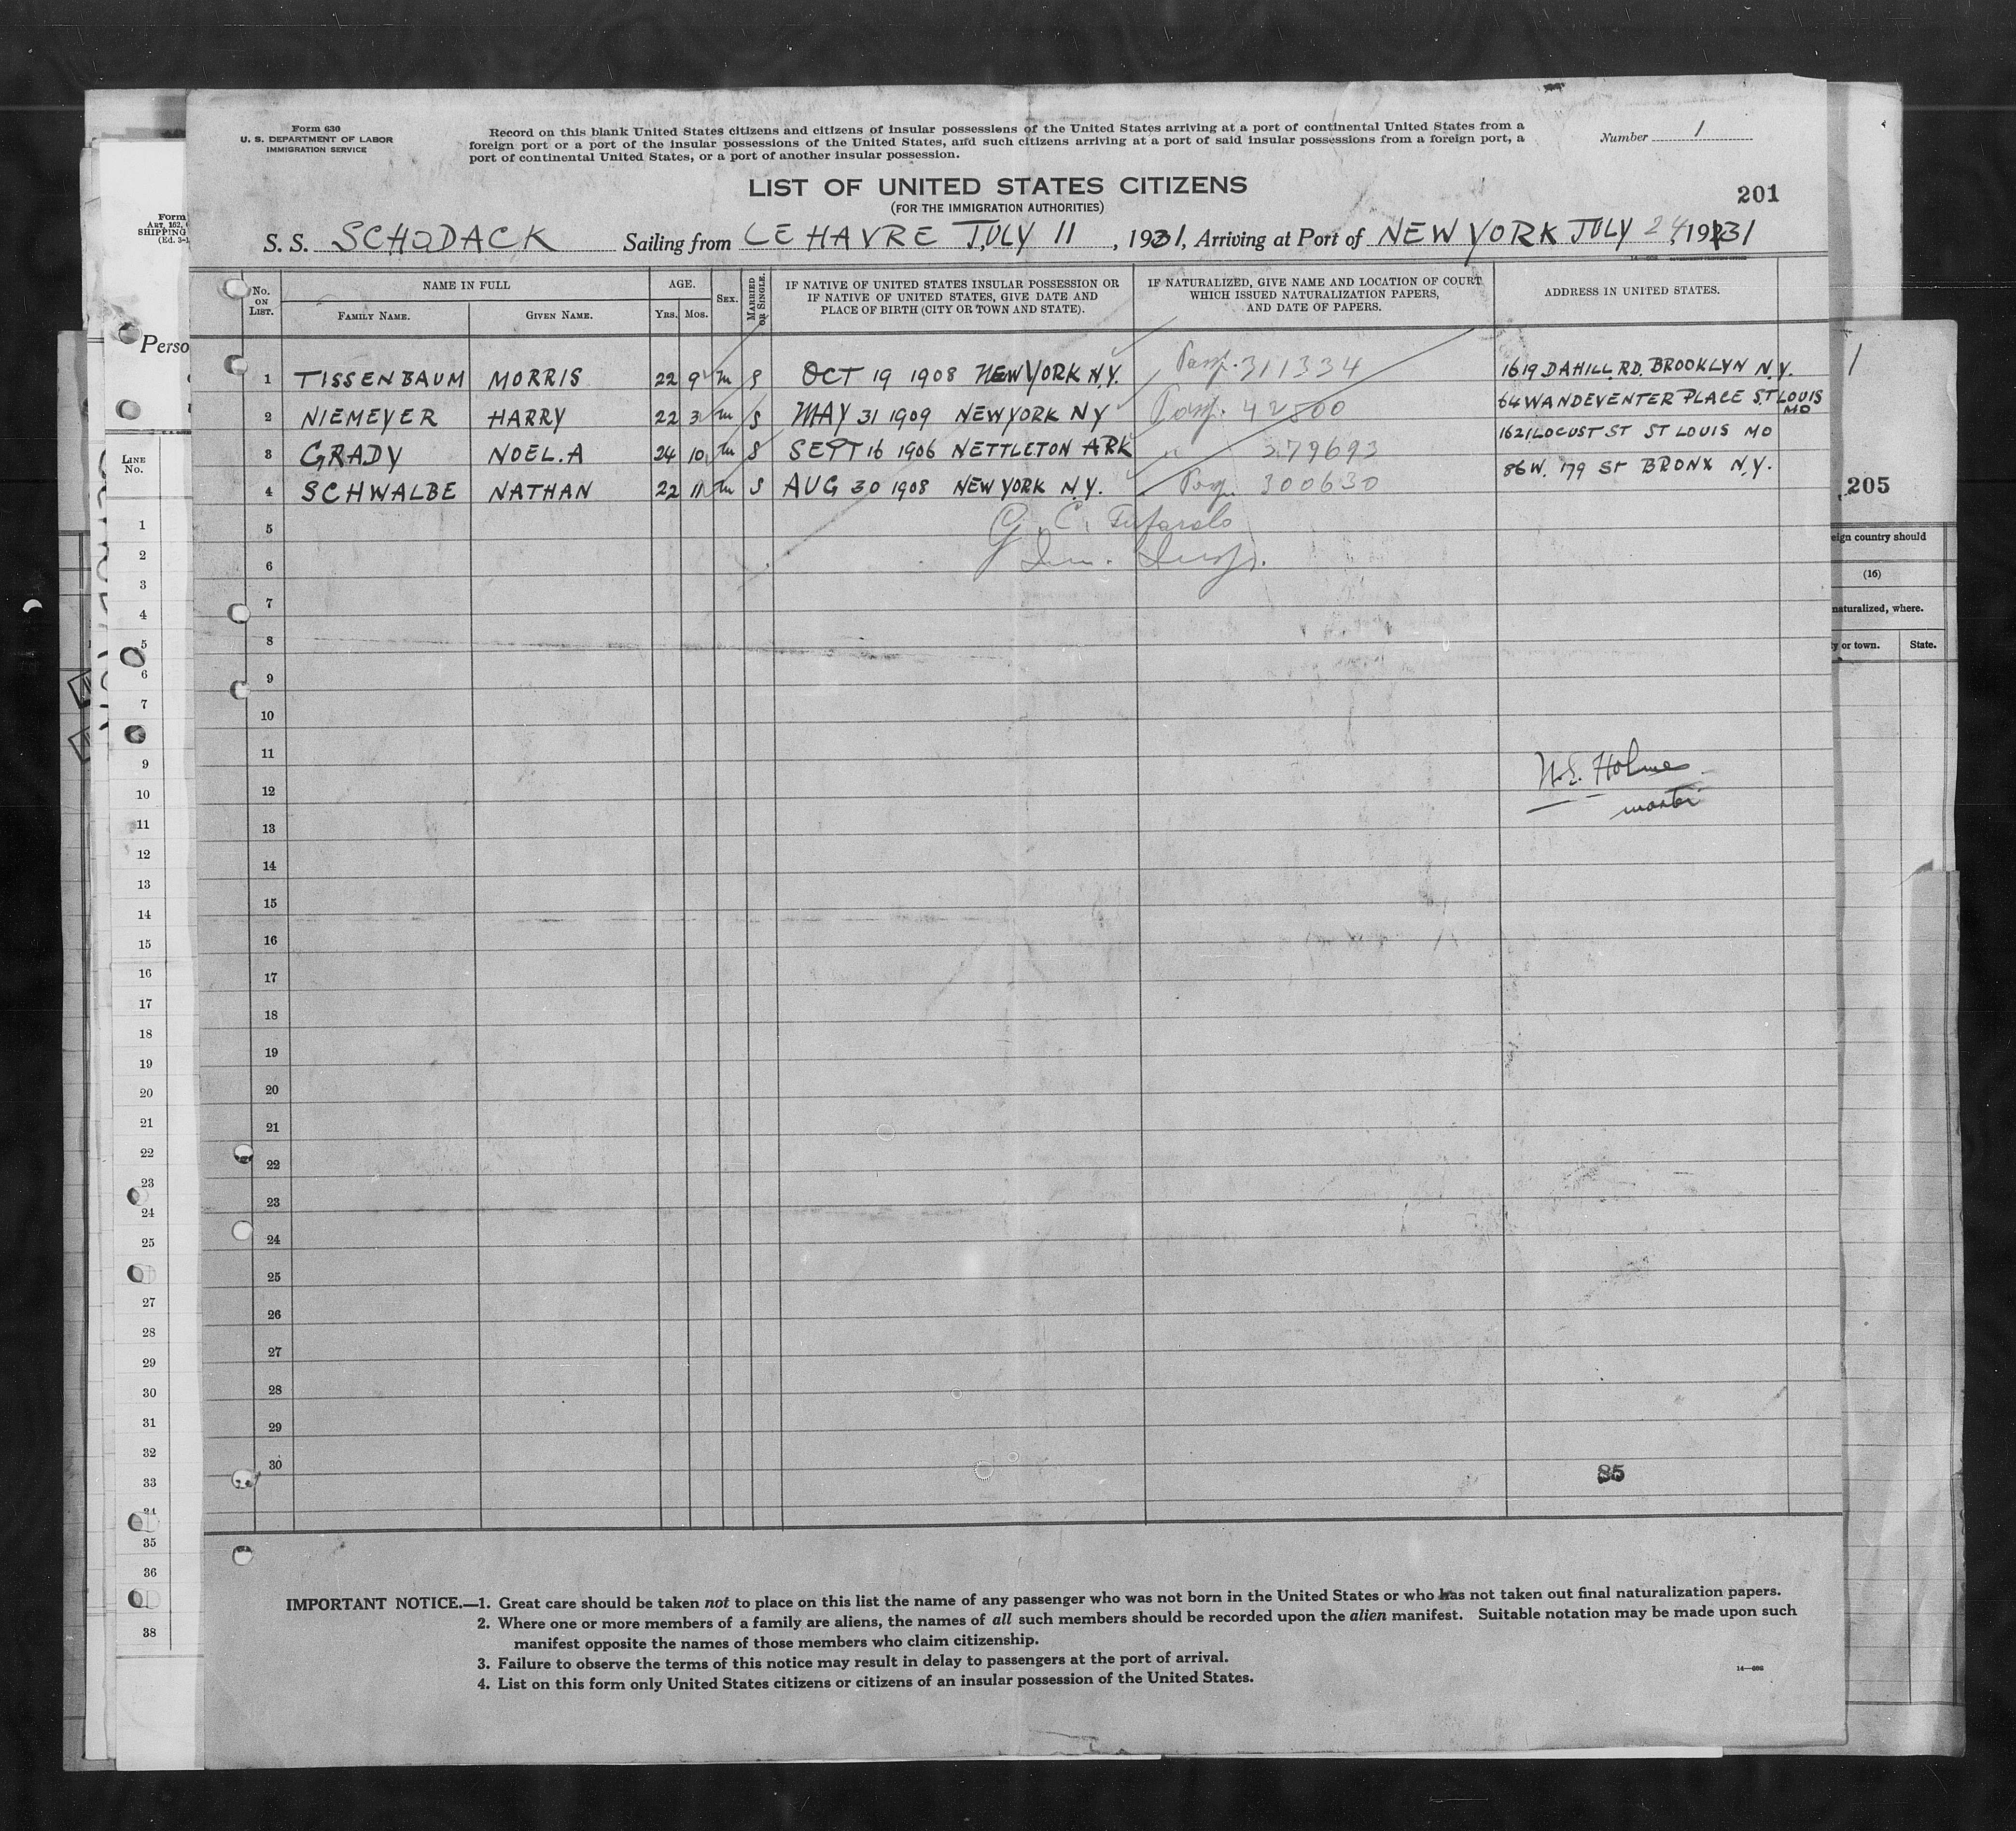 Form 630
U. S. DEPARTMENT OF LABOR
IMMIGRATION SERVICE
Record on this blank United States citizens and citizens of insular possessions of the United States arriving at a port of continental United States from a
foreign port or a port of the insular possessions of the United States, and such citizens arriving at a port of said insular possessions from a foreign port, a
port of continental United States, or a port of another insular possession.
Number 1
LIST OF UNITED STATES CITIZENS
(FOR THE IMMIGRATION AUTHORITIES)
201
S. S. SCHODACK Sailing from LE HAVRE JULY 11, 1931, Arriving at Port of NEW YORK JULY 24, 1931
No. ON LIST. NAME IN FULL AGE. SEX. MARRIED OR SINGLE. IF NATIVE OF UNITED STATES INSULAR POSSESSION OR IF NATIVE OF UNITED STATES, GIVE DATE AND PLACE OF BIRTH (CITY OR TOWN AND STATE). IF NATURALIZED, GIVE NAME AND LOCATION OF COURT WHICH ISSUED NATURALIZATION PAPERS, AND DATE OF PAPERS. ADDRESS IN UNITED STATES.
FAMILY NAME. GIVEN NAME. YRS. MOS.
1 TISSENBAUM MORRIS 22 9 m S OCT 19 1908 NEW YORK N.Y. Passp. 311334 1619 DAHILL RD. BROOKLYN N.Y.
2 NIEMEYER HARRY 22 3 m S MAY 31 1909 NEW YORK NY Passp. 42500 64 WANDEVENTER PLACE ST LOUIS MO
3 GRADY NOEL.A 24 10 m S SEPT 16 1906 NETTLETON ARK " 379693 1621 LOCUST ST ST LOUIS MO
4 SCHWALBE NATHAN 22 11 m S AUG 30 1908 NEW YORK N.Y. 300630 86 W. 179 St BRONX N.Y.
5 G. C.
6 Im. Insp.
7
8
9
10
11 Holme
12 master
13
14
15
16
17
18
19
20
21
22
23
24
25
26
27
28
29
30
85
IMPORTANT NOTICE.—1. Great care should be taken not to place on this list the name of any passenger who was not born in the United States or who has not taken out final naturalization papers.
2. Where one or more members of a family are aliens, the names of all such members should be recorded upon the alien manifest. Suitable notation may be made upon such
manifest opposite the names of those members who claim citizenship.
3. Failure to observe the terms of this notice may result in delay to passengers at the port of arrival.
4. List on this form only United States citizens or citizens of an insular possession of the United States.
Form
ART. 162,
SHIPPING
(Ed. 3-1
Perso
LINE
No.
1
2
3
4
5
6
7
9
10
11
12
13
14
15
16
17
18
19
20
21
22
23
24
25
27
28
29
30
31
32
33
34
35
36
38
1
205
eign country should
(16)
naturalized, where.
ty or town. State.